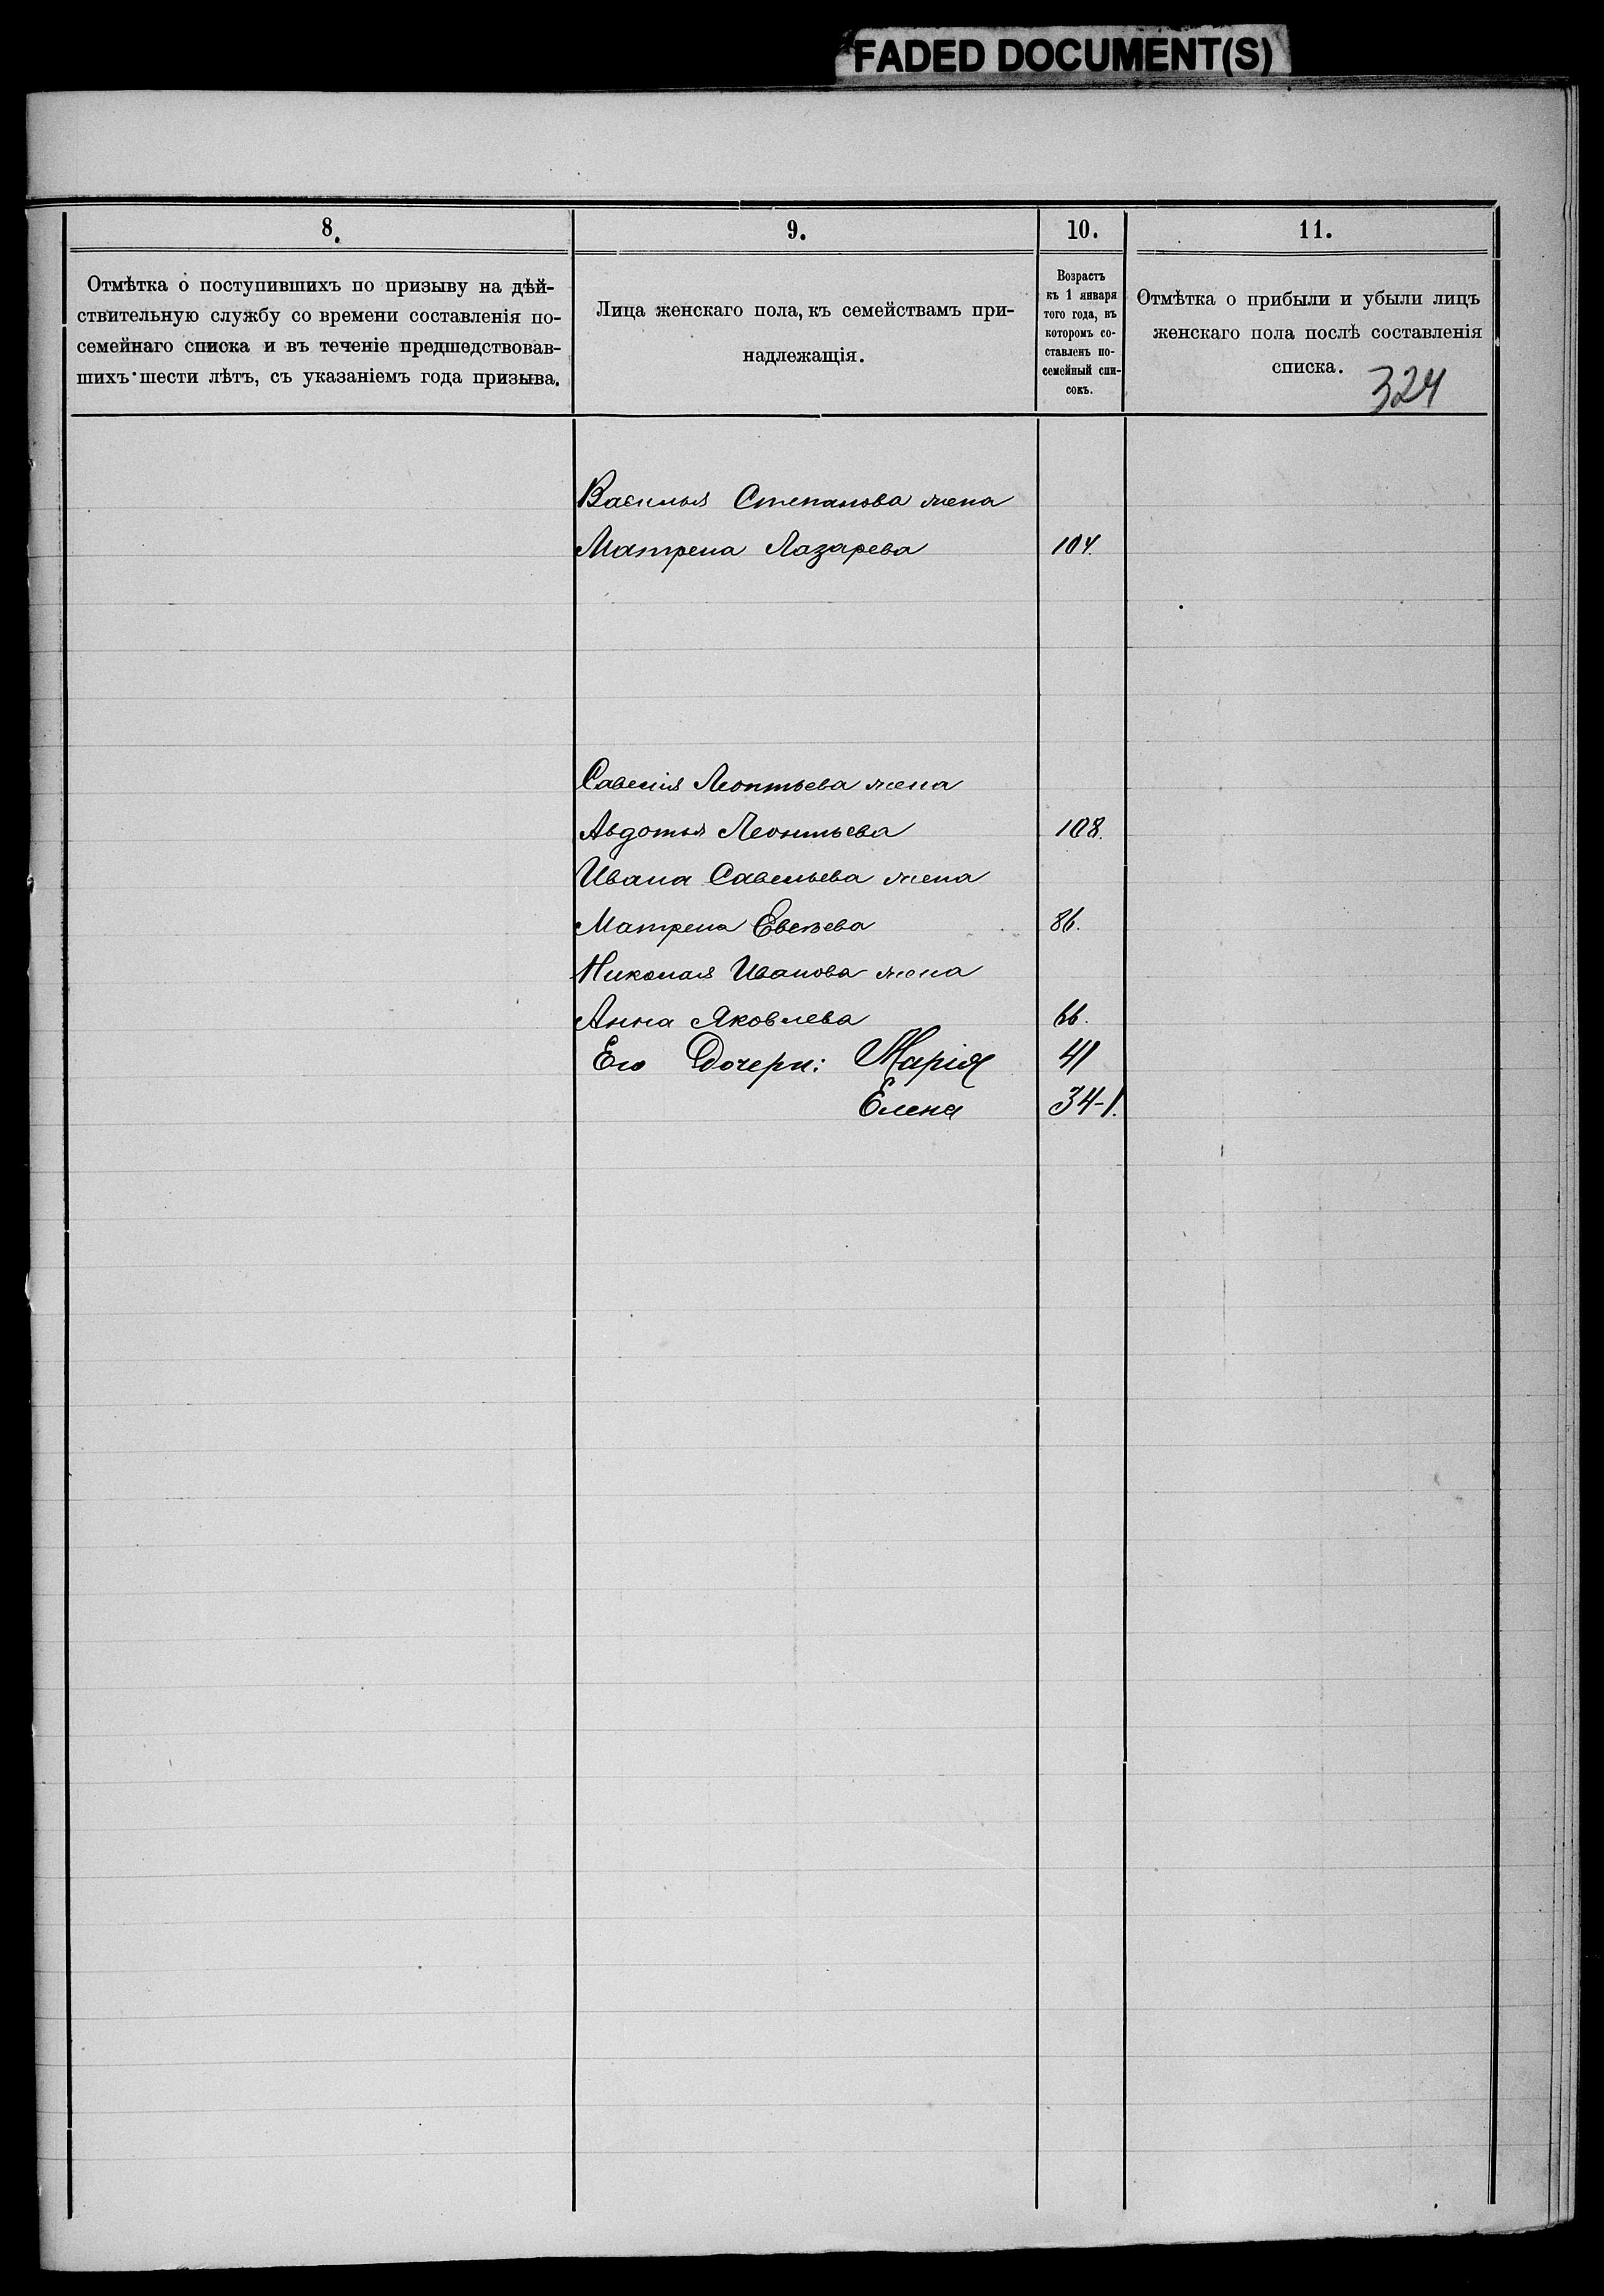 FADED DOCUMENT(S)
8.
9.
10.
11.
Отмѣтка о поступившихъ по призыву на дѣй-
ствительную службу со времени составленія по-
семейнаго списка и въ теченіе предшедствовав-
шихъ шести лѣтъ, съ указаніемъ года призыва.
Лица женскаго пола, къ семействамъ при-
надлежащія.
Возрастъ
къ 1 января
того года, въ
которомъ со-
ставленъ по-
семейный спи-
сокъ.
Отмѣтка о прибыли и убыли лицъ
женскаго пола послѣ составленія
списка.
324
Василья Степанова жена
Матрена Лазарева 104.
Савелія Леонтьева жена
Авдотья Леонтьева 108.
Ивана Савельева жена
Матрена 86.
Николая Иванова жена
Анна Яковлева 66.
Его Дочери: Марія 41
Елена 34-1.